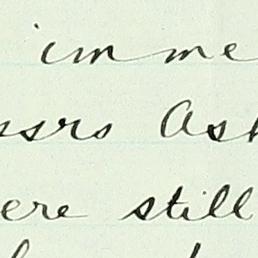 im me
ssrs Ash
ere still